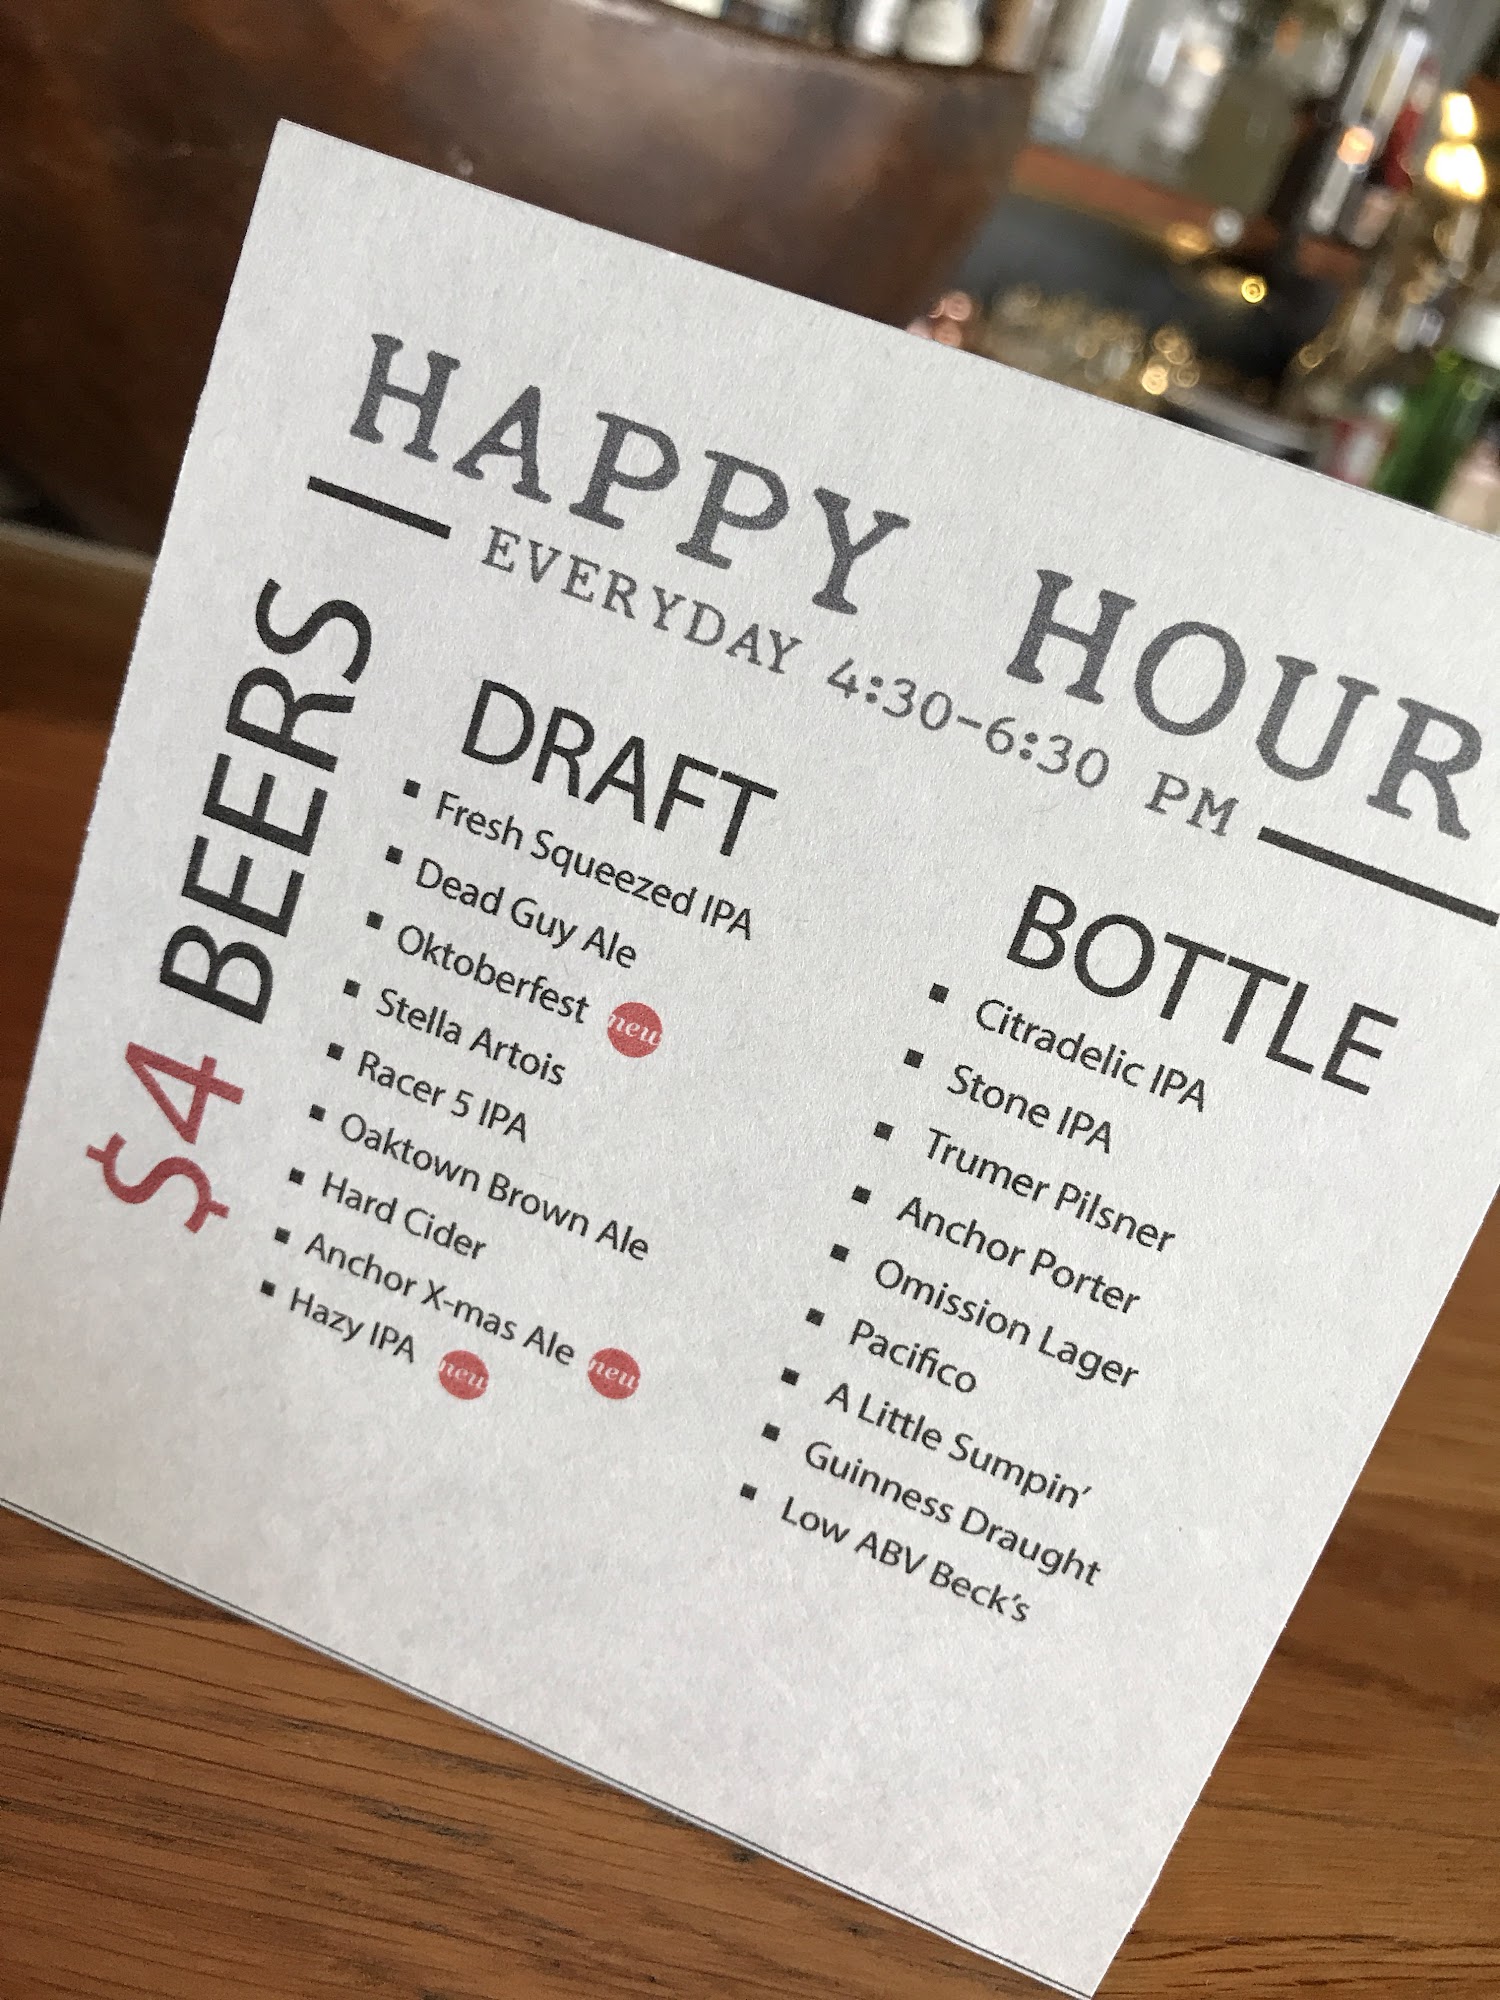 HAPPY HOUR
EVERYDAY 4:30-6:30 PM
$4 BEERS
DRAFT
▪ Fresh Squeezed IPA
▪ Dead Guy Ale
▪ Oktoberfest neu
▪ Stella Artois
▪ Racer 5 IPA
▪ Oaktown Brown Ale
▪ Hard Cider
▪ Anchor X-mas Ale neu
▪ Hazy IPA neu
BOTTLE
▪ Citradelic IPA
▪ Stone IPA
▪ Trumer Pilsner
▪ Anchor Porter
▪ Omission Lager
▪ Pacifico
▪ A Little Sumpin’
▪ Guinness Draught
▪ Low ABV Beck’s